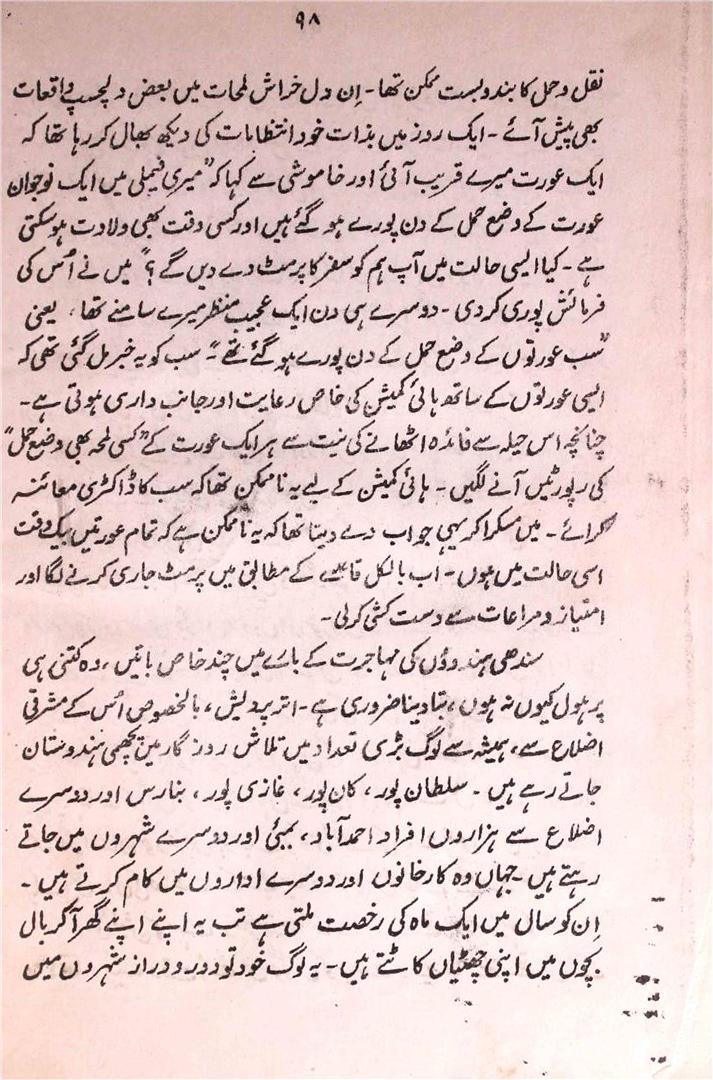 ۹۸
نقل و حمل کا بندوبست ممکن تھا۔ اِن دل خراش لمحات میں بعض دلچسپ واقعات
بھی پیش آئے۔ ایک روز میں بذات خود انتظابات کی دیکھ بھال کر رہا تھا کہ
ایک عورت میرے قریب آئی اور خاموشی سے کہا کہ "میری فیملی میں ایک نوجوان
عورت کے وضع حمل کے دن پورے ہو گئے ہیں اور کسی وقت بھی ولادت ہو سکتی
ہے۔ کیا ایسی حالت میں آپ ہم کو سفر کا پرمٹ دے دیں گے؟" میں نے اُس کی
فرمائش پوری کر دی۔ دوسرے ہی دن ایک عجیب منظر میرے سامنے تھا، یعنی
"سب عورتوں کے وضع حمل کے دن پورے ہو گئے تھے"۔ سب کو یہ خبر مل گئی تھی کہ
ایسی عورتوں کے ساتھ ہائی کمیشن کی خاص رعایت اور جانب داری ہوتی ہے۔
چنانچہ اس حیلہ سے فائدہ اٹھانے کی نیت سے ہر ایک عورت کے "کسی لمحہ بھی وضع حمل"
کی رپورٹیں آنے لگیں۔ ہائی کمیشن کے لیے یہ ناممکن تھا کہ سب کا ڈاکٹری معائنہ
کرائے۔ میں مسکرا کر یہی جواب دے دیتا تھا کہ یہ ناممکن ہے کہ تمام عورتیں بیک وقت
اسی حالت میں ہوں۔ اب بالکل قاعدے کے مطابق میں پرمٹ جاری کرنے لگا اور
امتیاز و مراعات سے دست کشی کرلی۔
سندھی ہندوؤں کی مہاجرت کے بارے میں چند خاص باتیں، وہ کتنی ہی
پر ہول کیوں نہ ہوں، بتا دینا ضروری ہے۔ اتر پردیش، بالخصوص اُس کے مشرقی
اضلاع سے، ہمیشہ سے لوگ بڑی تعداد میں تلاش روزگار میں پچھمی ہندوستان
جاتے رہے ہیں۔ سلطان پور، کان پور، غازی پور، بنارس اور دوسرے
اضلاع سے ہزاروں افراد احمد آباد، بمبئی اور دوسرے شہروں میں جاتے
رہتے ہیں۔ جہاں وہ کارخانوں اور دوسرے اداروں میں کام کرتے ہیں۔
اِن کو سال میں ایک ماہ کی رخصت ملتی ہے تب یہ اپنے اپنے گھر آکر بال
بچوں میں اپنی چھٹیاں کاٹتے ہیں۔ یہ لوگ خود تو دور و دراز شہروں میں